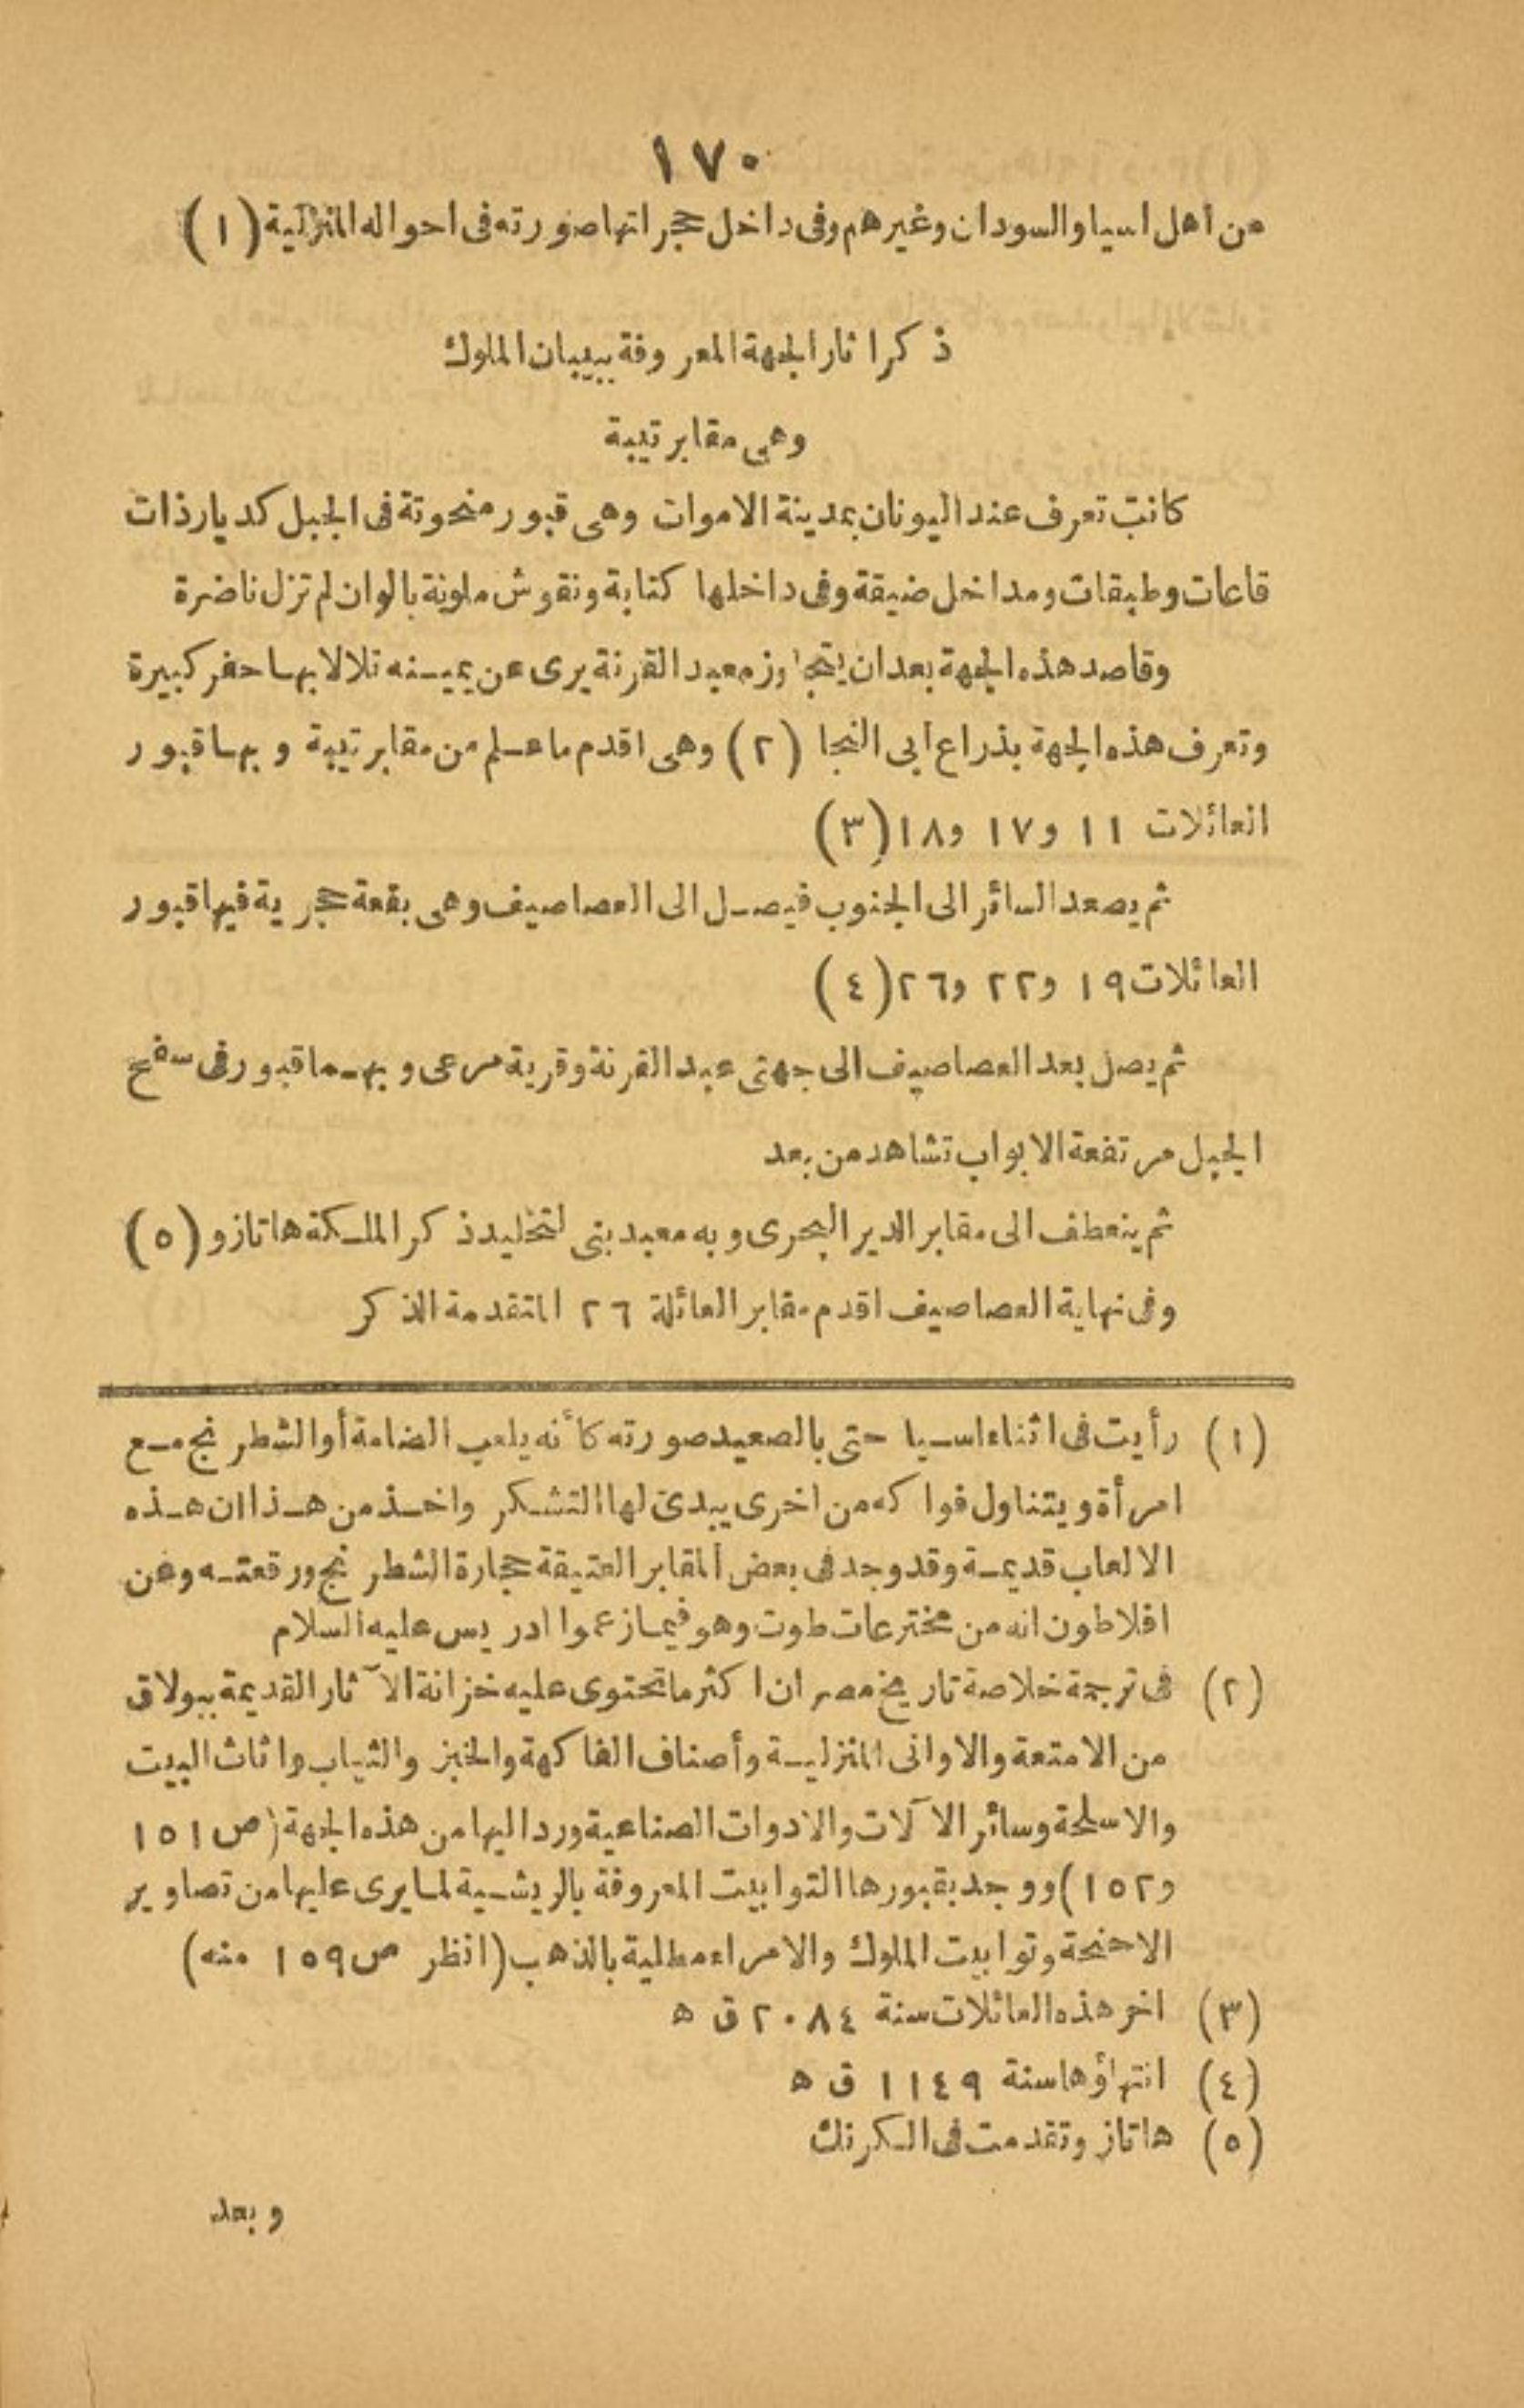 ١٧٠
من أهل اسيا والسودان وغيرهم وفى داخل حجراتها صورته فى احواله المنزلية (١)
ذكر اثار الجهة المعروفة ببيبان الملوك
وهى مقابر تيبة
كانت تعرف عند اليونان بمدينة الاموات وهى قبور منحوتة فى الجبل كديار ذات
قاعات وطبقات ومداخل ضيقة وفى داخلها كتابة ونقوش ملونة بالوان لم تزل ناضرة
وقاصد هذه الجهة بعد ان يتجاوز معبد القرنة يرى عن يمينه تلالا بها حفر كبيرة
وتعرف هذه الجهة بذراع أبى النجا (٢) وهى اقدم ما علم من مقابر تيبة وبها قبور
العائلات ١١ و١٧ و١٨ (٣)
ثم يصعد السائر الى الجنوب فيصل الى العصاصيف وهى بقعة حجرية فيها قبور
العائلات ١٩ و٢٢ و٢٦ (٤)
ثم يصل بعد العصاصيف الى جهتى عبد القرنة وقرية مرعى وبهما قبور فى سفح
الجبل مرتفعة الابواب تشاهد من بعد
ثم ينعطف الى مقابر الدير البحرى وبه معبد بنى لتخليد ذكر الملكة هاتازو (٥)
وفى نهاية العصاصيف اقدم مقابر العائلة ٢٦ المتقدمة الذكر
(١) رأيت فى اثناء سياحتى بالصعيد صورته كأنه يلعب الضامة أو الشطرنج مع
امرأة ويتناول فواكه من اخرى يبدئ لها التشكر واخذ من هذا ان هذه
الالعاب قديمة وقد وجد فى بعض المقابر العتيقة حجارة الشطرنج ورقعته وعن
افلاطون انه من مخترعات طوت وهو فيما زعموا ادريس عليه السلام
(٢) فى ترجمة خلاصة تاريخ مصر ان اكثر ما تحتوى عليه خزانة الآثار القديمة ببولاق
من الامتعة والاوانى المنزلية وأصناف الفاكهة والخبز والثياب واثاث البيت
والاسلحة وسائر الآلات والادوات الصناعية ورد اليها من هذه الجهة (ص ١٥١
و١٥٢) ووجد بقبورها التوابيت المعروفة بالريشية لما يرى عليها من تصاوير
الاجنحة وتوابيت الملوك والامراء مطلية بالذهب (انظر ص ١٥٩ منه)
(٣) اخر هذه العائلات سنة ٢٠٨٤ ق ه
(٤) انتهاؤها سنة ١١٤٩ ق ه
(٥) هاتازو تقدمت فى الكرنك
وبعد